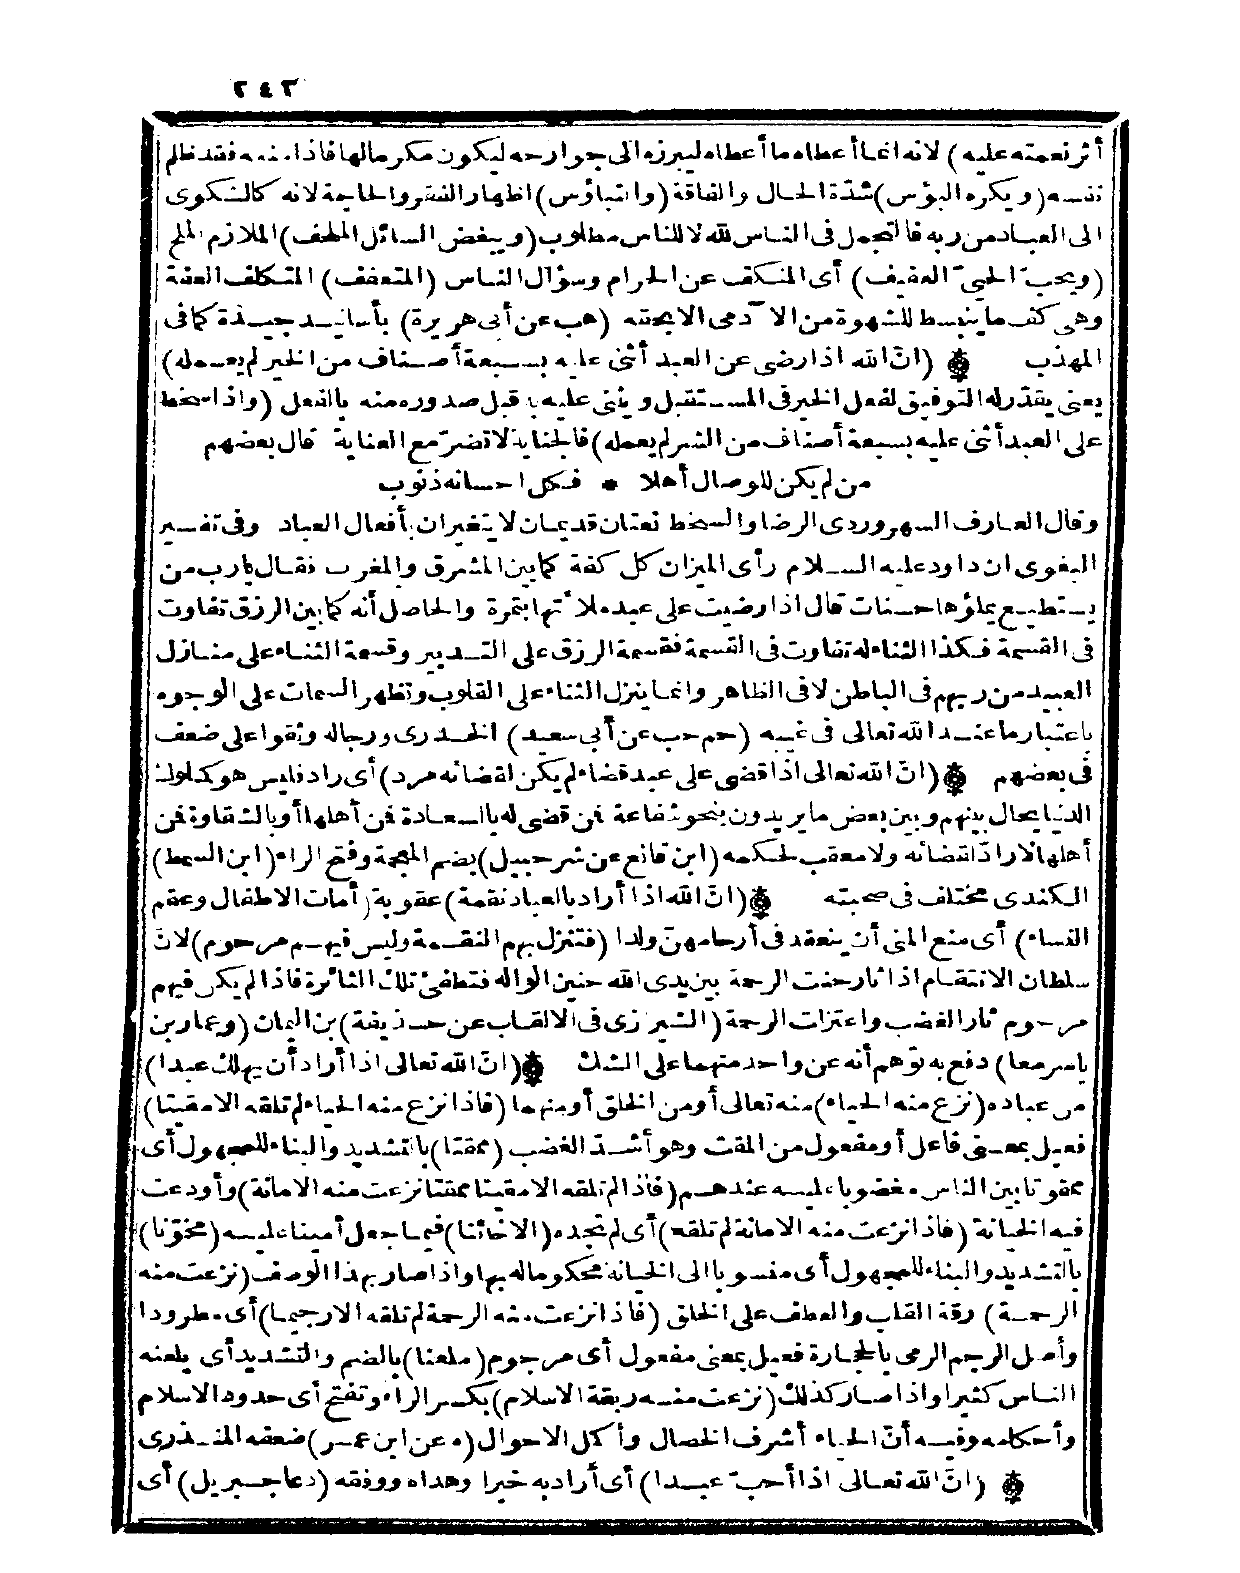 ٢٤٢
أثر نعمته عليه) لانه انما أعطاه ما أعطاه ليبرزه الى جوارحه ليكون مكرما لها فاذا منعه فقد ظلم
نفسه (ويكره البؤس) شدّة الحال والفاقة (والتباؤس) اظهار الفقر والحاجة لانه كالشكوى
الى العباد من ربه فالتجمل فى الناس لله لا للناس مطلوب (ويبغض السائل الملحف) الملازم الملح
(ويحبّ الحيىّ العفيف) أى المنكف عن الحرام وسؤال الناس (المتعفف) المتكلف العفة
وهى كف ما ينبسط للشهوة من الآدمى الا بحقه (هب عن أبى هريرة) بأسانيد جيدة كما فى
المهذب ۞ (انّ الله اذا رضى عن العبد أثنى عليه بسبعة أصناف من الخير لم يعمله)
يعنى يقدّر له التوفيق لفعل الخير فى المستقبل ويثنى عليه به قبل صدوره منه بالفعل (واذا سخط
على العبد أثنى عليه بسبعة أصناف من الشر لم يعمله) فالجناية لا تضرّ مع العناية قال بعضهم
من لم يكن للوصال أهلا * فكل احسانه ذنوب
وقال العارف السهروردى الرضا والسخط نعتان قديمان لا يتغيران بأفعال العباد وفى تفسير
البغوى ان داود عليه السلام رأى الميزان كل كفة كما بين المشرق والمغرب فقال يارب من
يستطيع يملؤها حسنات قال اذا رضيت على عبد ملأتها بتمرة والحاصل أنه كما بين الرزق تفاوت
فى القسمة فكذا الثناء له تفاوت فى القسمة فقسمة الرزق على التدبير وقسمة الثناء على منازل
العبيد من ربهم فى الباطن لا فى الظاهر وانما ينزل الثناء على القلوب وتظهر السمات على الوجوه
باعتبار ما عند الله تعالى فى غيبه (حم حب عن أبى سعيد) الخدرى ورجاله وثقوا على ضعف
فى بعضهم ۞ (انّ الله تعالى اذا قضى على عبد قضاء لم يكن لقضائه مرد) أى راد فليس هو كملوك
الدنيا يحال بينهم وبين بعض ما يريدون بنحو شفاعة فمن قضى له بالسعادة فمن أهلها أو بالشقاوة فمن
أهلها لا رادّ لقضائه ولا معقب لحكمه (ابن قانع عن شرحبيل) بضم المعجمة وفتح الراء (ابن السمط)
الكندى مختلف فى صحبته ۞ (انّ الله اذا أراد بالعباد نقمة) عقوبة (أمات الاطفال وعقم
النساء) أى منع المنى أن ينعقد فى أرحامهنّ ولدا (فتنزل بهم النقمة وليس فيهم مرحوم) لانّ
سلطان الانتقام اذا ثار حنت الرحمة بين يدى الله حنين الواله فتطفئ تلك الثائرة فاذا لم يكن فيهم
مرحوم ثار الغضب واعتزلت الرحمة (الشيرازى فى الالقاب عن حذيفة) بن اليمان (وعمار بن
ياسر معا) دفع به توّهم أنه عن واحد منهما على الشك ۞ (انّ الله تعالى اذا أراد أن يهلك عبدا)
من عباده (نزع منه الحياء) منه تعالى أو من الخلق أو منهما (فاذا نزع منه الحياء لم تلقه الا مقيتا)
فعيل بمعنى فاعل أو مفعول من المقت وهو أشدّ الغضب (ممقتا) بالتشديد والبناء للمجهول أى
ممقوتا بين الناس مغضوبا عليه عندهم (فاذا لم تلقه الا مقيتا ممقتا نزعت منه الامانة) وأودعت
فيه الخيانة (فاذا نزعت منه الامانة لم تلقه) أى لم تجده (الا خائنا) فيما جعل أمينا عليه (مخوّنا)
بالتشديد والبناء للمجهول أى منسوبا الى الخيانة محكوما له بها واذا صار بهذا الوصف (نزعت منه
الرحمة) رقة القلب والعطف على الخلق (فاذا نزعت منه الرحمة لم تلقه الا رجيما) أى مطرودا
وأصل الرجم الرمى بالحجارة فعيل بمعنى مفعول أى مرجوم (ملعنا) بالضم والتشديد أى يلعنه
الناس كثيرا واذا صار كذلك (نزعت منه ربقة الاسلام) بكسر الراء وتفتح أى حدود الاسلام
وأحكامه وفيه أنّ الحياء أشرف الخصال وأكمل الاحوال (ه عن ابن عمر) ضعفه المنذرى
۞ (انّ الله تعالى اذا أحبّ عبدا) أى أراد به خيرا وهداه ووفقه (دعا جبريل) أى